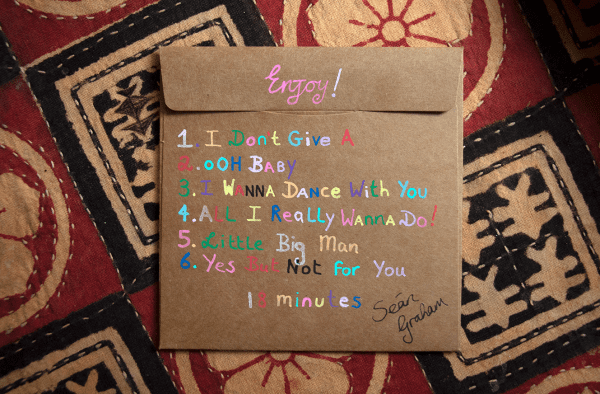 Enjoy!
1. I Dont Give A
2. OOH BABY
3. I WANNA DANCE With You
4. All I Really WANNA DO!
5. Little Big Man
6. Yes But Not For You
18 minutes
Seán
Graham